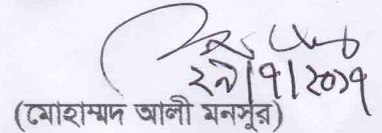 ২৯/৭/২০১৭
(মোহাম্মদ আলী মনসুর)